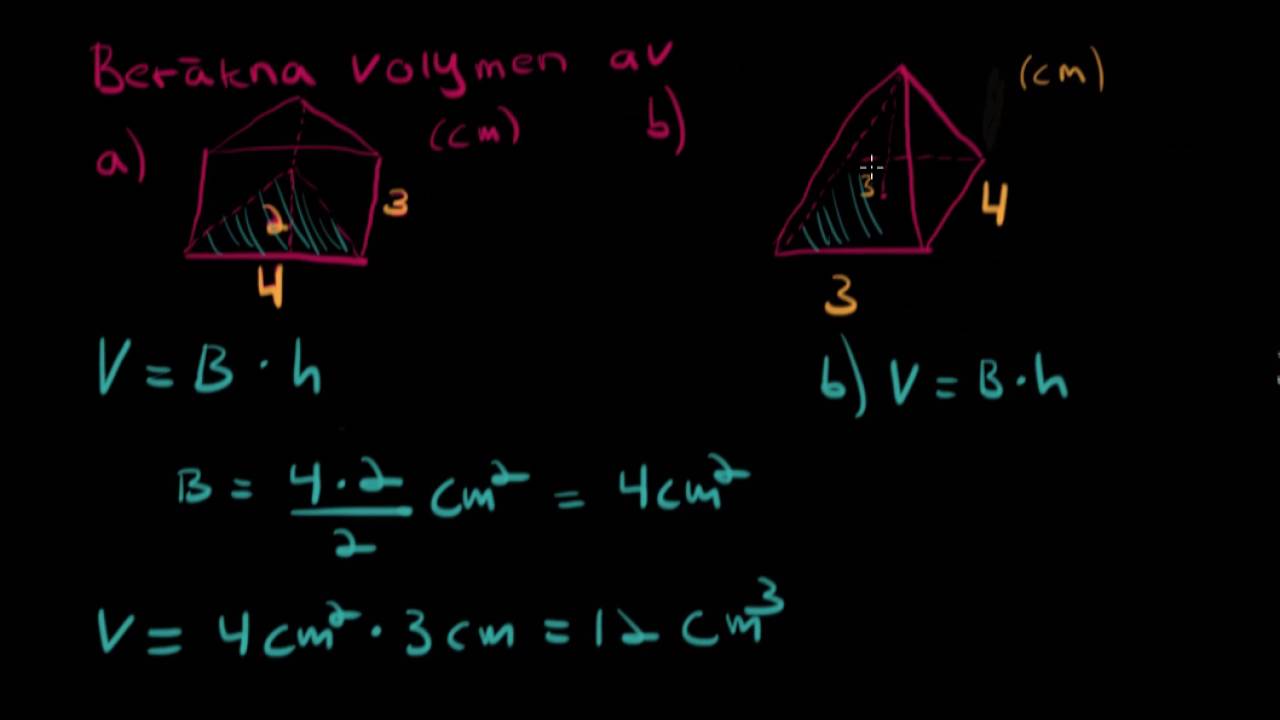 Beräkna volymen av
a) (cm) b) (cm)
2 3 3 4
4 3
V = B · h b) V = B · h
B = 4 · 2 / 2 cm² = 4cm²
V = 4cm² · 3cm = 12 cm³